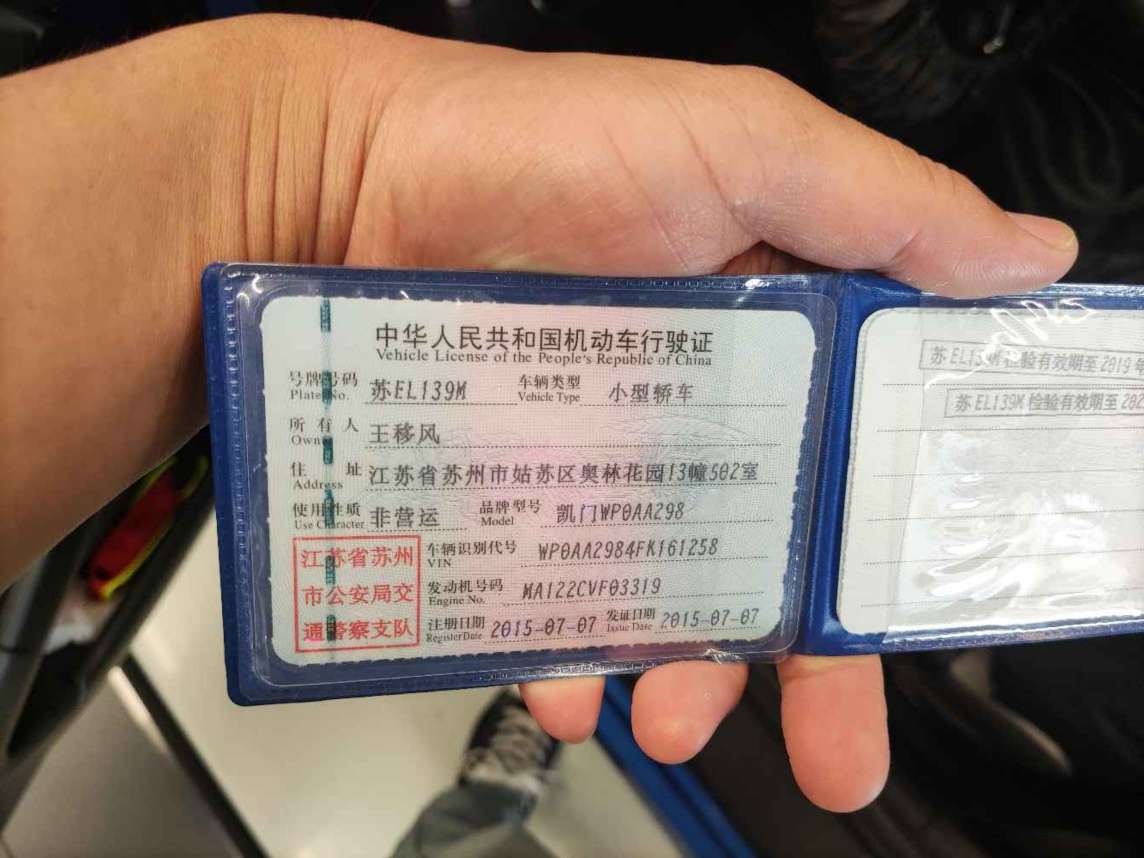 中华人民共和国机动车行驶证
Vehicle License of the People's Republic of China
号牌号码 苏EL139M 车辆类型 小型轿车
Plate No. Vehicle Type
所有人 王移风
Owner
住址 江苏省苏州市姑苏区奥林花园13幢502室
Address
使用性质 非营运 品牌型号 凯门WP0AA298
Use Character Model
江苏省苏州
市公安局交
通警察支队
车辆识别代号 WP0AA2984FK161258
VIN
发动机号码 MA122CVF03319
Engine No.
注册日期 2015-07-07 发证日期 2015-07-07
Register Date Issue Date
苏EL139M 检验有效期至 2019年
苏EL139M 检验有效期至 202